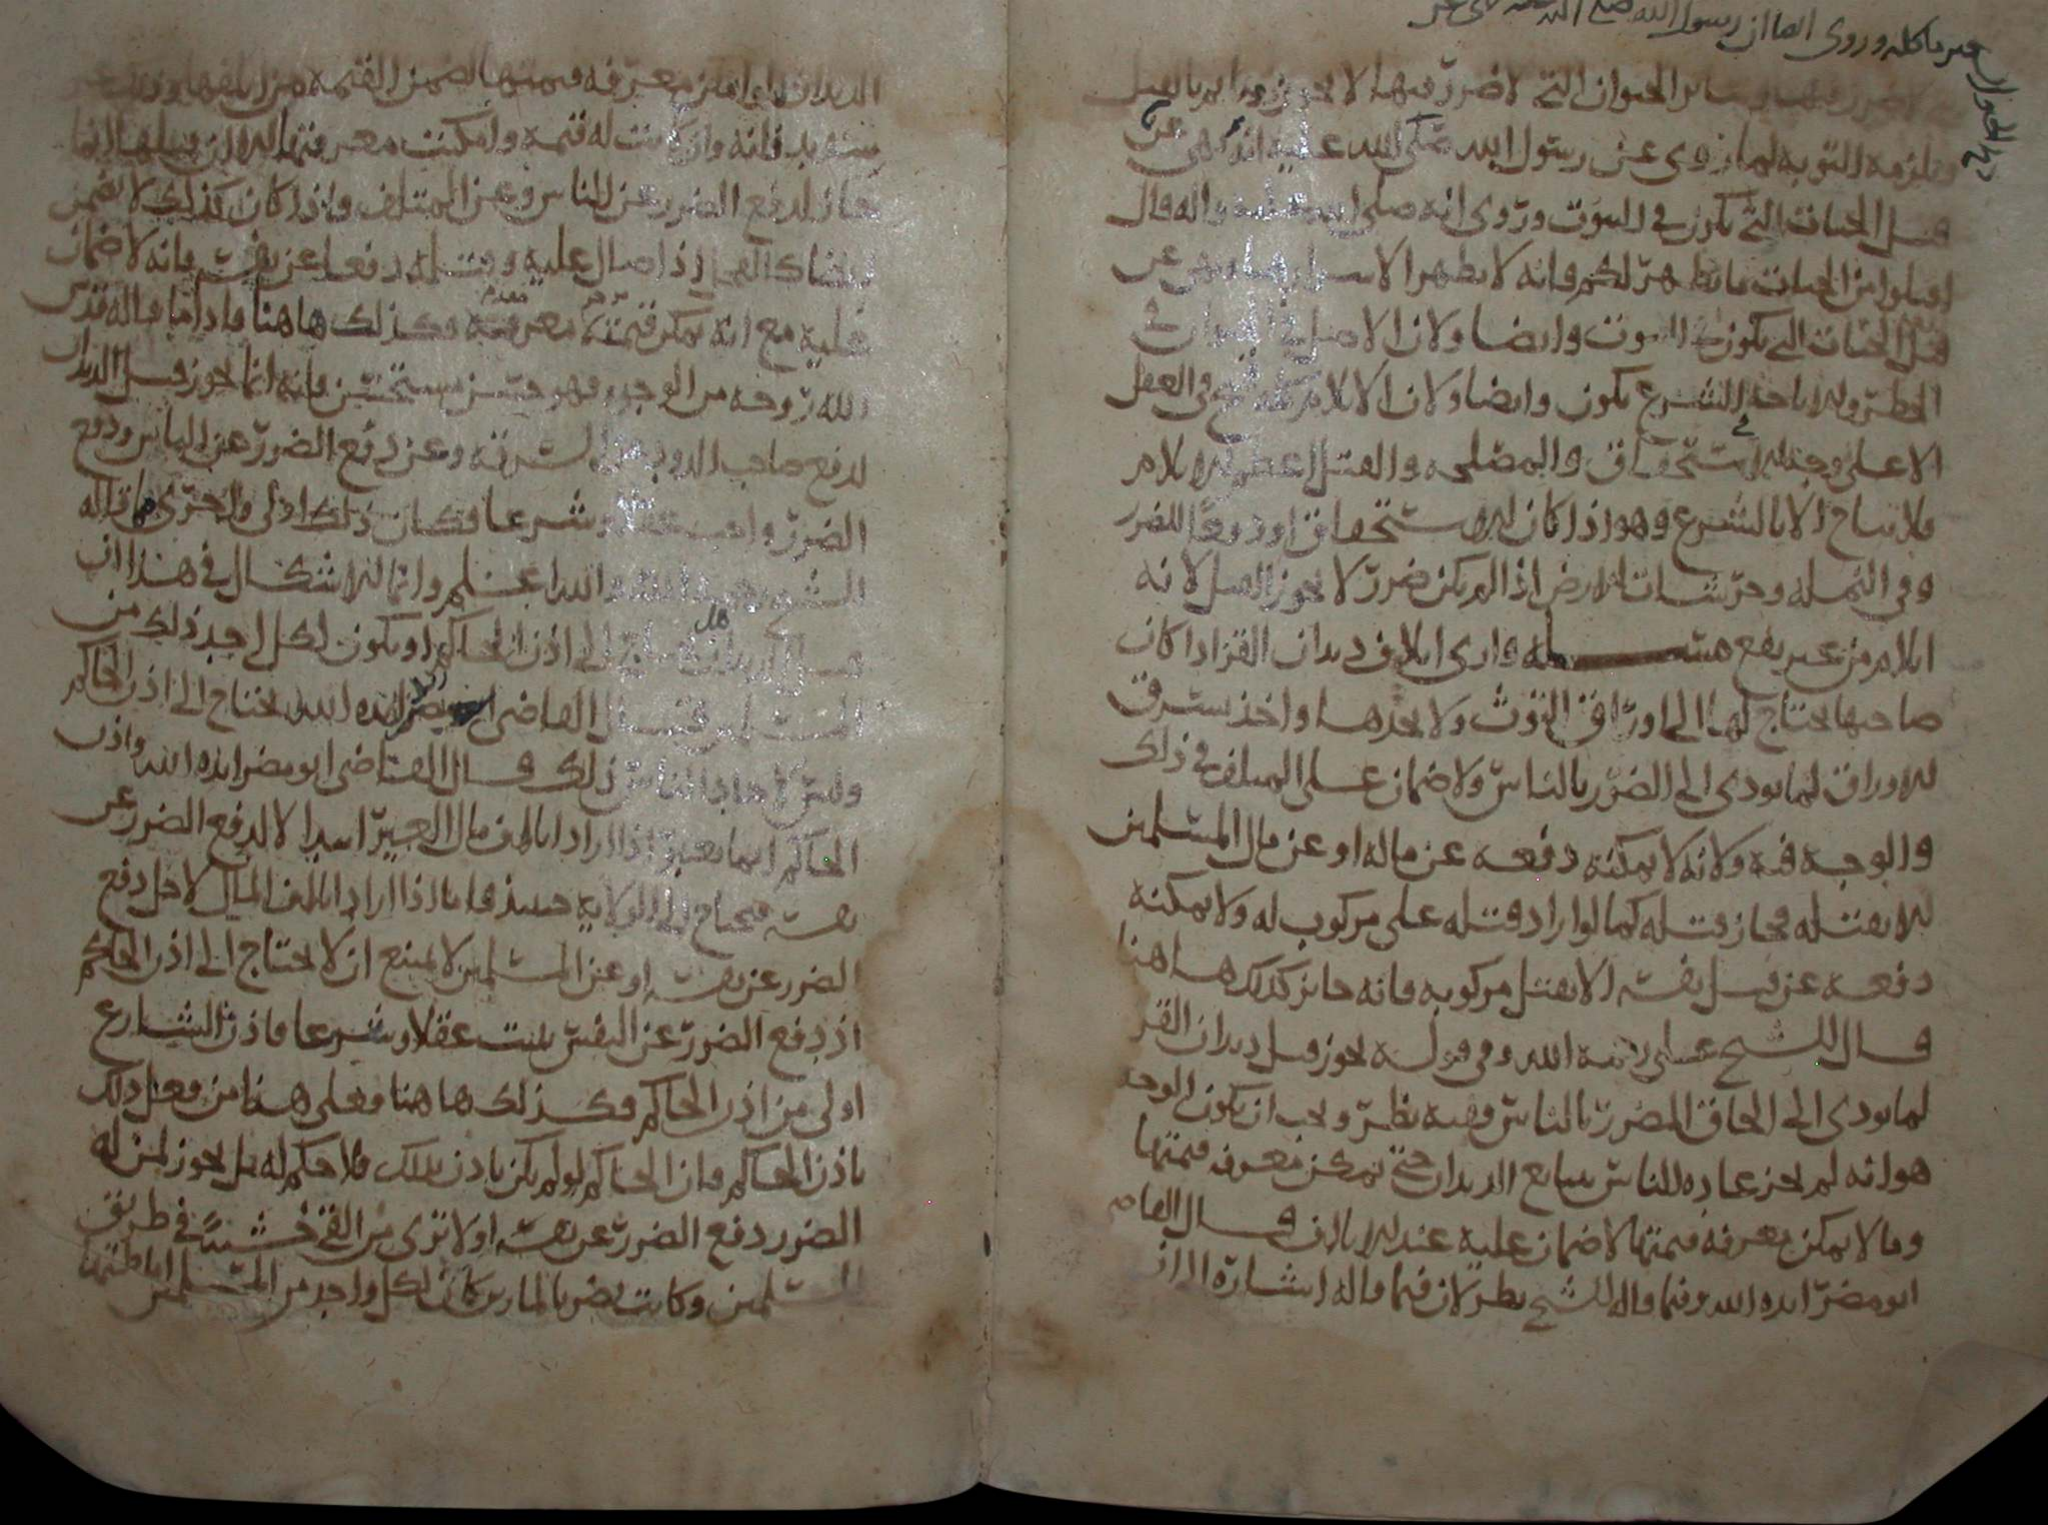 عىر ماكله وروى ايضا ان رسول الله صلى الله
ذبح الحيوان
لا ضرر فيها وسائر الحيوان التي لا ضرر فيها لا يجوز
ويلزمه التوبه لما روى عن رسول الله صلى الله عليه انه نهى عن
قتل الحيات التي تكون في البيوت وروى انه صلى الله عليه واله قال
اقتلوا من الحيات ما يظهر لكم فانه لا يظهر الا شرارها ونهى عن
قتل الحيات التي تكون في البيوت وايضا ولان الاصل في الحيوان
الحظر والاباحه بالشرع يكون وايضا ولان الايلام قبيح في العقل
الا على وجه الاستحقاق والمصلحه والقتل اعظم الايلام
فلا يباح الا بالشرع وهو اذا كان الاستحقاق او دفعا للضرر
وفي النمله وحرشات الارض اذا لم يكن ضرر لا يجوز القتل لانه
ايلام من غير نفع مسله وارى اتلاف ديدان القز اذا كان
صاحبها يحتاج لها الى اوراق التوث ولا يجدها واخذ سرق
الاوراق لما يودى الى الضرر بالناس ولا ضمان على المتلف في ذلك
والوجه فيه ولانه لا يمكنه دفعه عن ماله او عن مال المسلمين
الا بقتله فجاز قتله كما لو اراد قتله على مركوب له ولا يمكنه
دفعه عن قتل نفسه الا بقتل مركوبه فانه جائز كذلك هاهنا
قال الشيخ علي رحمه الله وفي قوله يجوز قتل ديدان القز
لما يودى الى الحاق المضرر بالناس وفيه نظر ويجب ان يكون الوجه
هو انه لم يجز عاده الناس ببيع الديدان حتى يمكن معرفه قيمتها
وما لا يمكن معرفه قيمتها لا ضمان عليه عند الاتلاف قال القاضي
ابو مضر ايده الله وفيما قاله الشيخ نظر لان فيما قاله اشاره الى ان
الديدان لو امكن معرفه قيمتها لضمن القيمه من اتلفها
سديد فانه وان كانت له قيمه وامكنت معرفتها الا ان قتلها انما
جاز لدفع الضرر عن الناس وعن المتلف واذا كان كذلك لا يضمن
ايضا كالفحل اذا صال عليه وقتله دفعا عن نفسه فانه لا ضمان
عليه مع انه يمكن قيمته معرفته وكذلك هاهنا واما ما قاله قدس
الله روحه من الوجه فهو حسن مستحسن فانه انما يجوز قتل الديدان
لدفع صاحب الدود عن السرقه وعن دفع الضرر عن الناس ودفع
الضرر واجب عقلا وشرعا فكان ذلك اولى واحرى مما قاله
الشيخ رحمه الله والله اعلم وانما الاشكال في هذا ان
هل يحتاج الى اذن الحاكم او يكون لكل احد ذلك من
المسلمين قال القاضي ابو مضر ايده الله يحتاج الى اذن الحاكم
وليس لاحاد الناس ذلك قال القاضي ابو مضر ايده الله واذن
الحاكم انما يعتبر اذا اراد اتلاف مال الغير ابتدا لا لدفع الضرر عن
نفسه فيحتاج الى الولايه حينئذ فاما اذا اراد اتلاف المال لاجل دفع
الضرر عن نفسه او عن المسلمين لا يمتنع ان لا يحتاج الى اذن الحاكم
اذ دفع الضرر عن النفس يثبت عقلا وشرعا فاذن الشارع
اولى من اذن الحاكم وكذلك هاهنا وعلى هذا من فعل ذلك
باذن الحاكم فان الحاكم لو لم يكن ياذن بذلك فلا حكم له بل يجوز لمن له
الضرر دفع الضرر عن نفسه اولا ترى من القى خشبة في طريق
المسلمين وكانت تضر بالمارين كان لكل واحد من المسلمين اماطتها